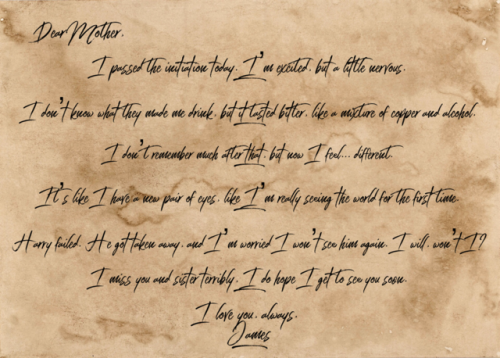 Dear Mother,
I passed the initiation today. I'm excited, but a little nervous.
I don't know what they made me drink, but it tasted bitter, like a mixture of copper and alcohol.
I don't remember much after that, but now I feel... different.
It's like I have a new pair of eyes, like I'm really seeing the world for the first time.
Harry failed. He got taken away, and I'm worried I won't see him again. I will, won't I?
I miss you and sister terribly. I do hope I get to see you soon.
I love you, always.
James